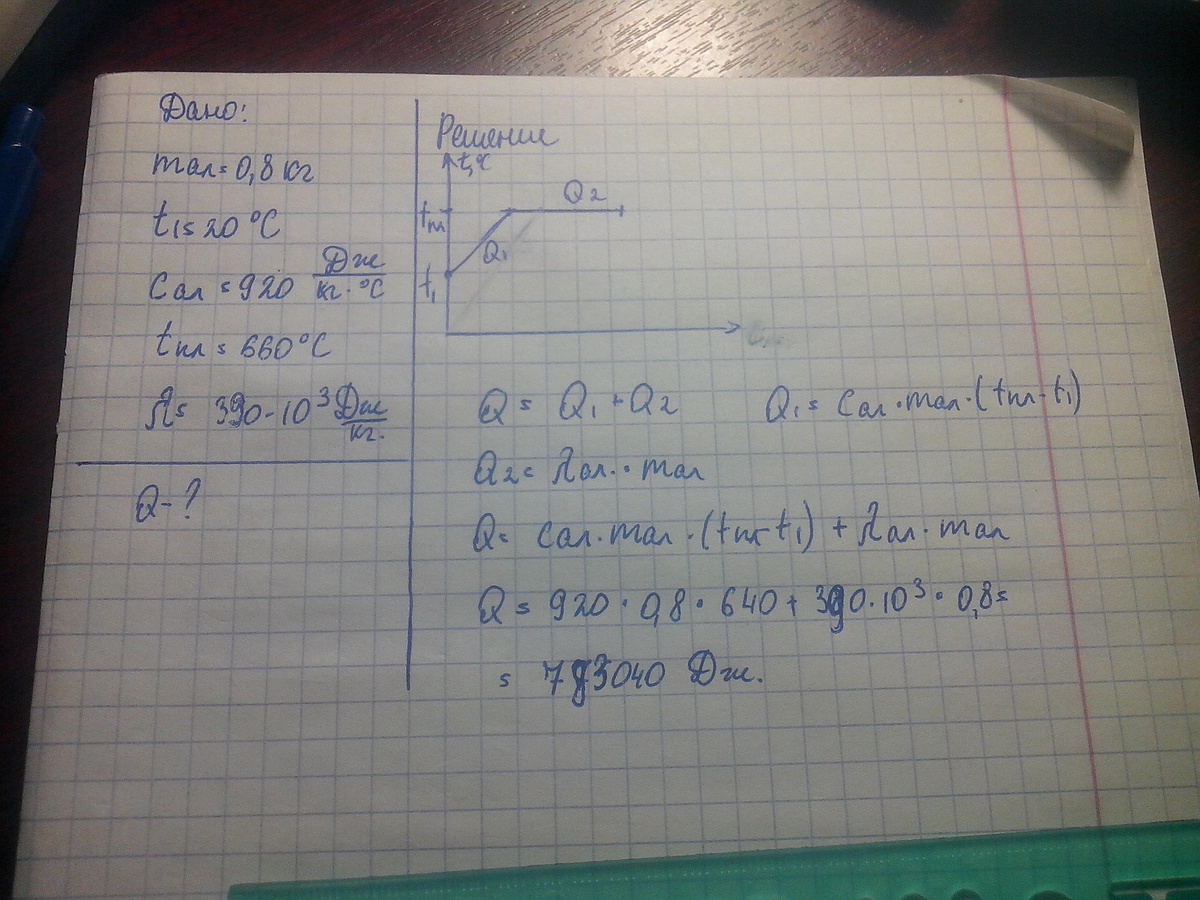 Дано:
mал = 0,8 кг
t1 = 20 °C
Cал = 920 Дж/кг·°C
tпл = 660°C
λ = 390·10³ Дж/кг.
Q-?
Решение
t,°C
tпл
t1
Q1
Q2
Q = Q1 + Q2 Q1 = Cал·mал·(tпл-t1)
Q2 = λал·mал
Q = Cал·mал·(tпл-t1) + λал·mал
Q = 920·0,8·640 + 390·10³·0,8 =
= 783040 Дж.